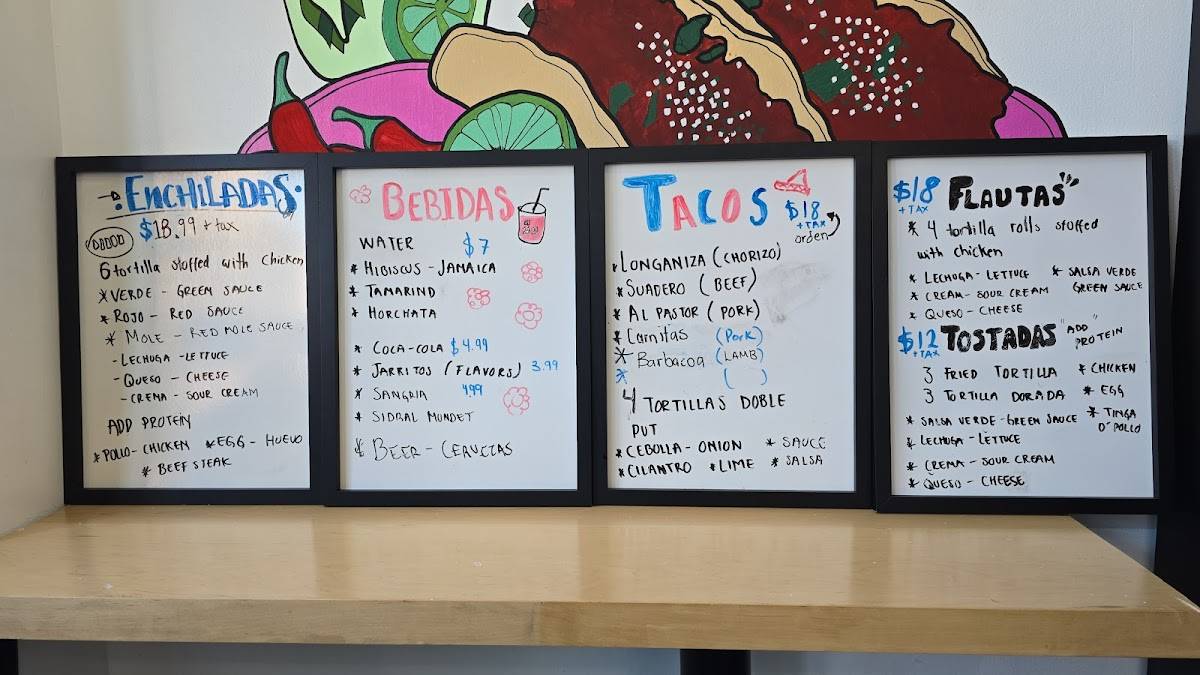 ENCHILADAS
$18.99 + tax
6 tortilla stoffed with chicken
* VERDE - GREEN SAUCE
* ROJO - RED SAUCE
* MOLE - RED MOLE SAUCE
- LECHUGA - LETTUCE
- QUESO - CHEESE
- CREMA - SOUR CREAM
ADD PROTEIN
* POLLO - CHICKEN * EGG - HUEVO
* BEEF STEAK
BEBIDAS
WATER $7
* HIBISCUS - JAMAICA
* TAMARIND
* HORCHATA
* COCA-COLA $4.99
* JARRITOS (FLAVORS) 3.99
* SANGRIA 4.99
* SIDRAL MUNDET
* BEER - CERVEZAS
TACOS
$18
+ TAX
orden
* LONGANIZA (CHORIZO)
* SUADERO (BEEF)
* AL PASTOR (PORK)
* Carnitas (Pork)
* Barbacoa (LAMB)
* ( )
4 TORTILLAS DOBLE
PUT
* CEBOLLA - ONION * SAUCE
* CILANTRO * LIME * SALSA
$18 FLAUTAS
+ TAX
* 4 tortilla rolls stoffed
with chicken
* LECHUGA - LETTUCE * SALSA VERDE
* CREAM - SOUR CREAM GREEN SAUCE
* QUESO - CHEESE
$12 TOSTADAS "ADD
+ TAX PROTEIN"
3 FRIED TORTILLA * CHICKEN
3 TORTILLA DORADA * EGG
* SALSA VERDE - GREEN SAUCE * TINGA
* LECHUGA - LETTUCE D' POLLO
* CREMA - SOUR CREAM
* QUESO - CHEESE